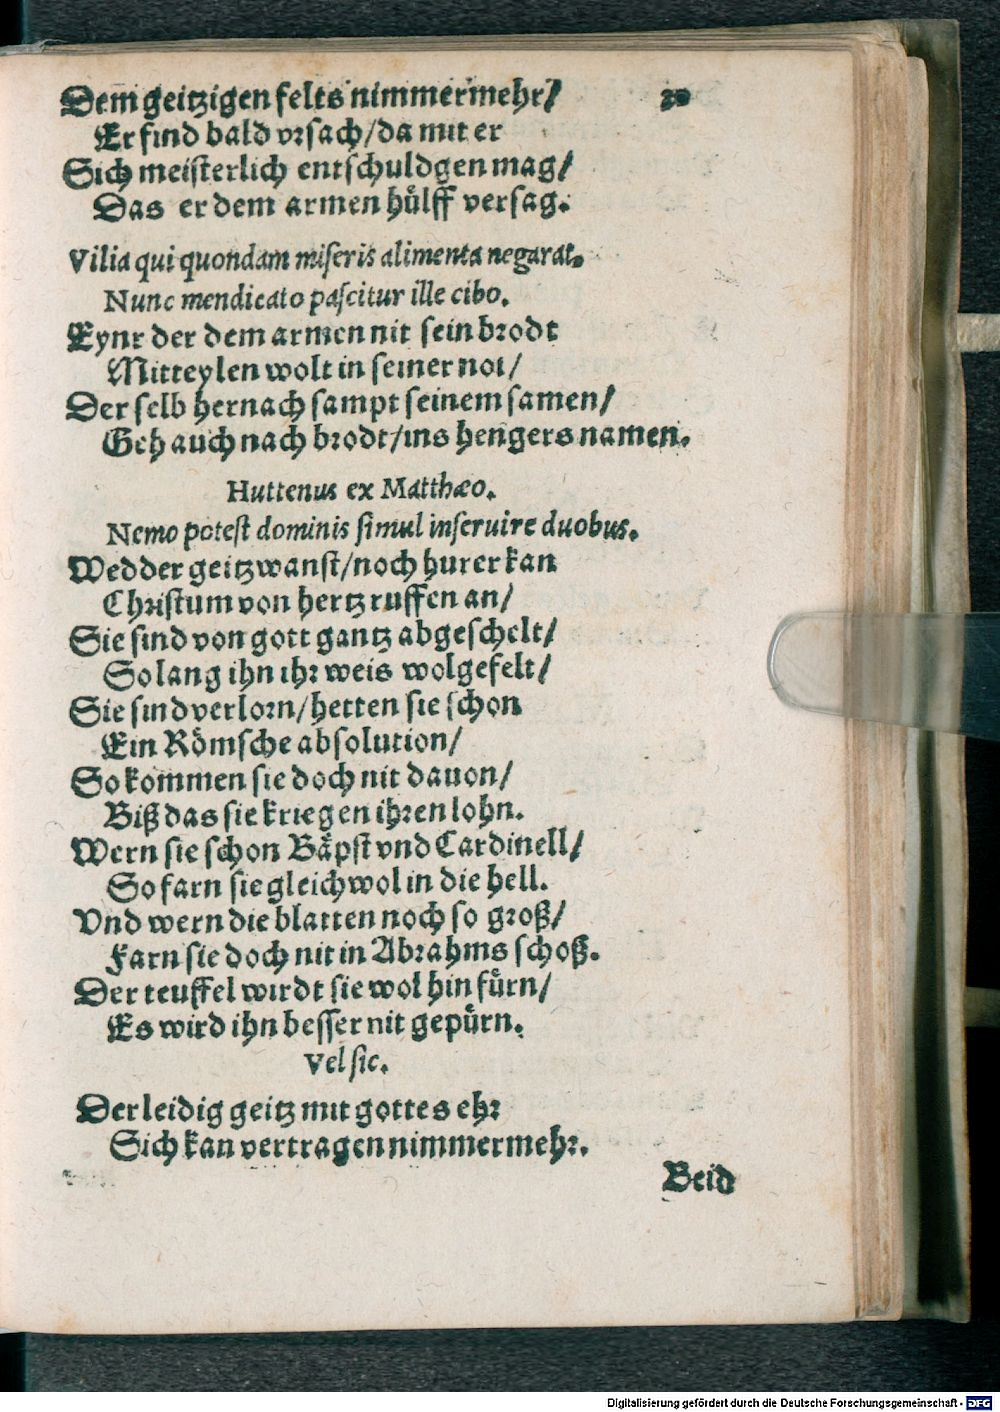 Dem geitzigen felts nimmermehr/ 30
Er find bald vrsach/da mit er
Sich meisterlich entschuldgen mag/
Das er dem armen hülff versag.
Vilia qui quondam miseris alimenta negarat.
Nunc mendicato pascitur ille cibo.
Eynr der dem armen nit sein brodt
Mitteylen wolt in seiner not/
Der selb hernach sampt seinem samen/
Geh auch nach brodt/ins hengers namen.
Huttenus ex Matthæo.
Nemo potest dominis simul inseruire duobus.
Wed der geitzwanst/noch hurer kan
Christum von hertz ruffen an/
Sie sind von gott gantz abgeschelt/
So lang ihn ihr weis wolgefelt/
Sie sind verlorn/hetten sie schon
Ein Römsche absolution/
So kommen sie doch nit dauon/
Biß das sie kriegen ihren lohn.
Wern sie schon Bäpst vnd Cardinell/
So farn sie gleichwol in die hell.
Vnd wern die blatten noch so groß/
Farn sie doch nit in Abrahms schoß.
Der teuffel wirdt sie wol hin fürn/
Es wird ihn besser nit gepürn.
Vel sic.
Der leidig geitz mit gottes ehr
Sich kan vertragen nimmermehr.
Beid
Digitalisierung gefördert durch die Deutsche Forschungsgemeinschaft - DFG